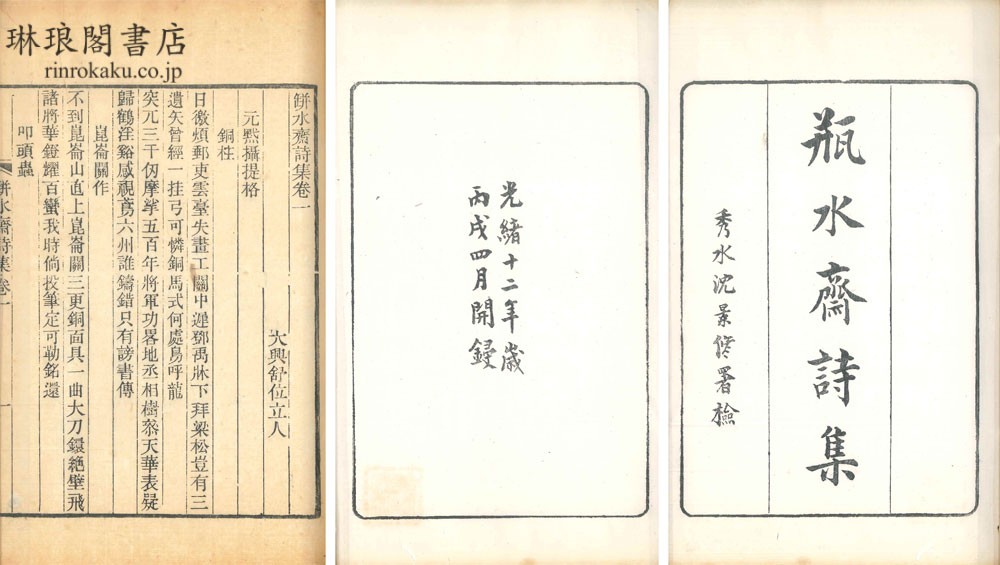 瓶水齋詩集
秀水沈景修署檢
光緒十二年歲
丙戌四月開鋟
琳琅閣書店
rinrokaku.co.jp
缾水齋詩集卷一
大興舒位立人
元黓攝提格
銅柱
日徼煩郵吏雲臺失畫工關中遲鄧禹牀下拜梁松豈有三
遺矢曾經一挂弓可憐銅馬式何處鳥呼龍
突兀三千仞摩挲五百年將軍功畧地丞相樹叅天華表疑
歸鶴淫谿感視鳶六州誰鑄錯只有謗書傳
崑崙關作
不到崑崙山直上崑崙關三更銅面具一曲大刀鐶絶壁飛
諸將華鐙耀百蠻我時倘投筆定可勒銘還
叩頭蟲
缾水齋詩集卷一
一